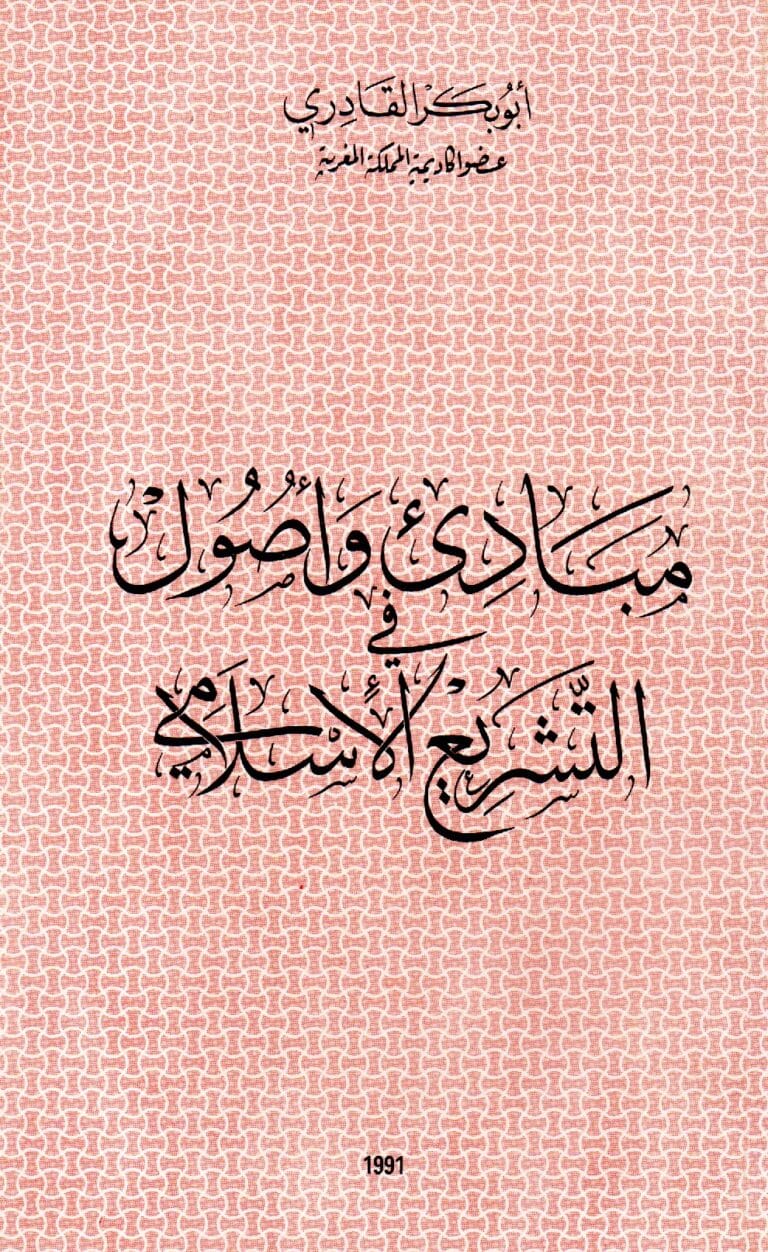 أبو بكر القادري
عضو اكاديمية المملكة المغربية
مَبَادِئ وَأُصُول
في
التَّشريع الأسلامي
1991